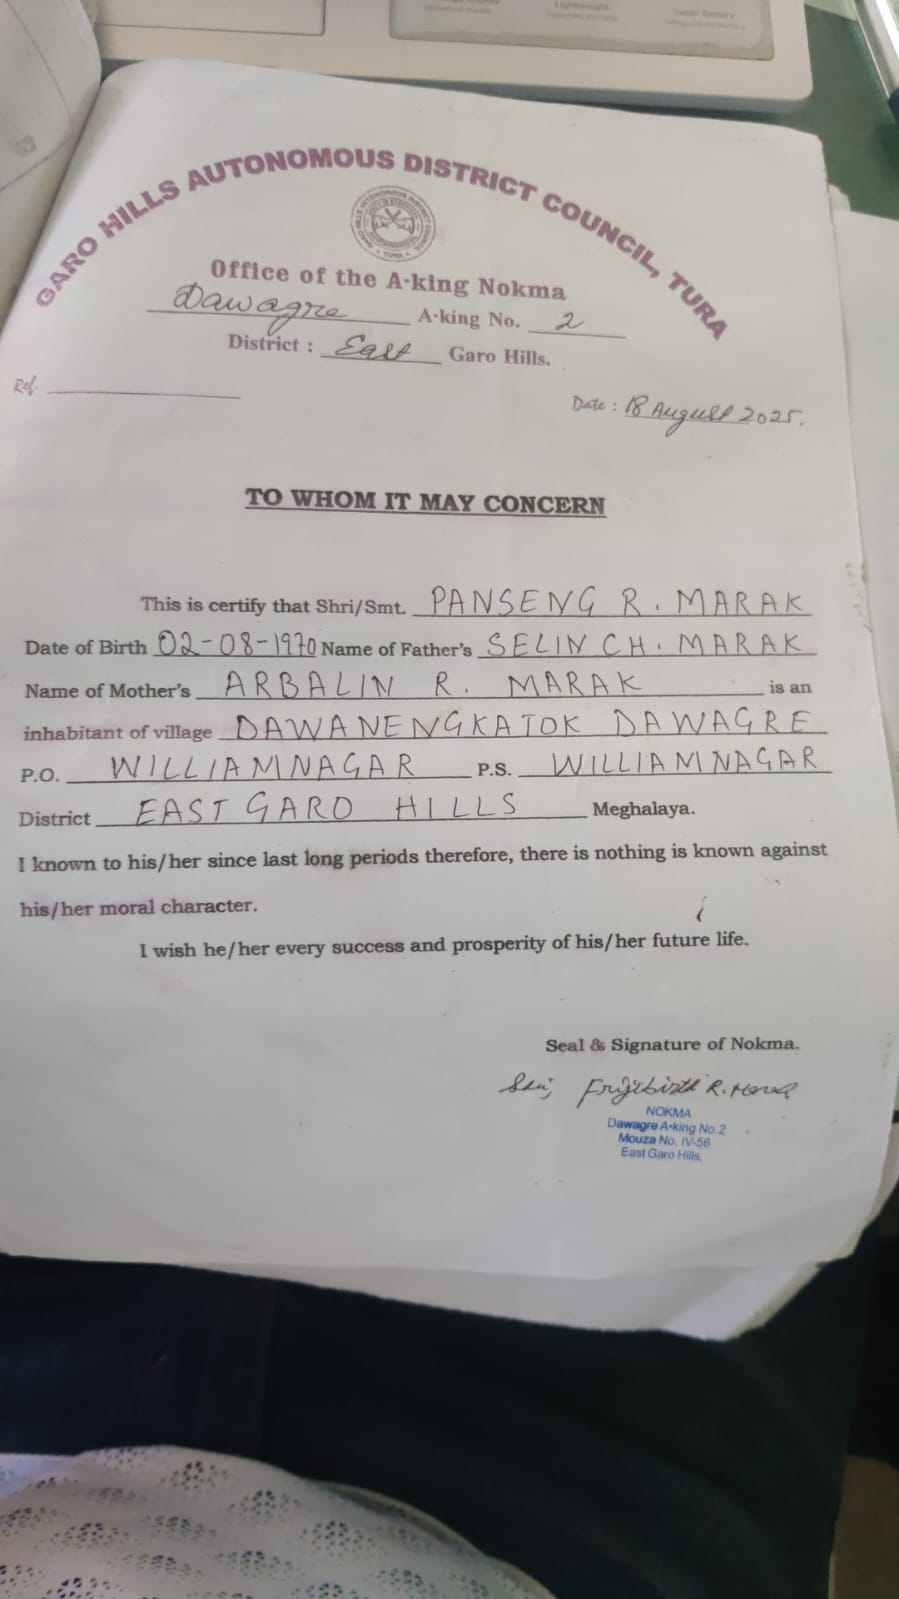 GARO HILLS AUTONOMOUS DISTRICT COUNCIL, TURA
Office of the A·king Nokma
Dawagre A·king No. 2
District : East Garo Hills.
Ref.
Date : 18 August 2025.
TO WHOM IT MAY CONCERN
This is certify that Shri/Smt. PANSENG R. MARAK
Date of Birth 02-08-1970 Name of Father's SELIN CH. MARAK
Name of Mother's ARBALIN R. MARAK is an
inhabitant of village DAWANENGKATOK DAWAGRE
P.O. WILLIAMNAGAR P.S. WILLIAMNAGAR
District EAST GARO HILLS Meghalaya.
I known to his/her since last long periods therefore, there is nothing is known against
his/her moral character.
I wish he/her every success and prosperity of his/her future life.
Seal & Signature of Nokma.
R. Marak
NOKMA
Dawagre A•king No.2
Mouza No. IV-56
East Garo Hills.